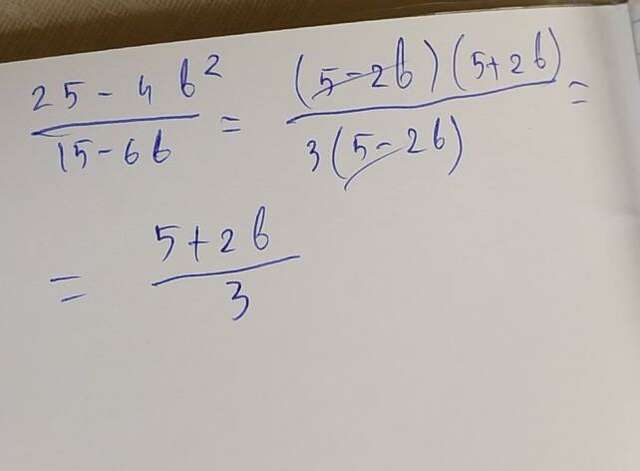 25 - 4b² / 15 - 6b = (5 - 2b)(5 + 2b) / 3(5 - 2b) =
= 5 + 2b / 3